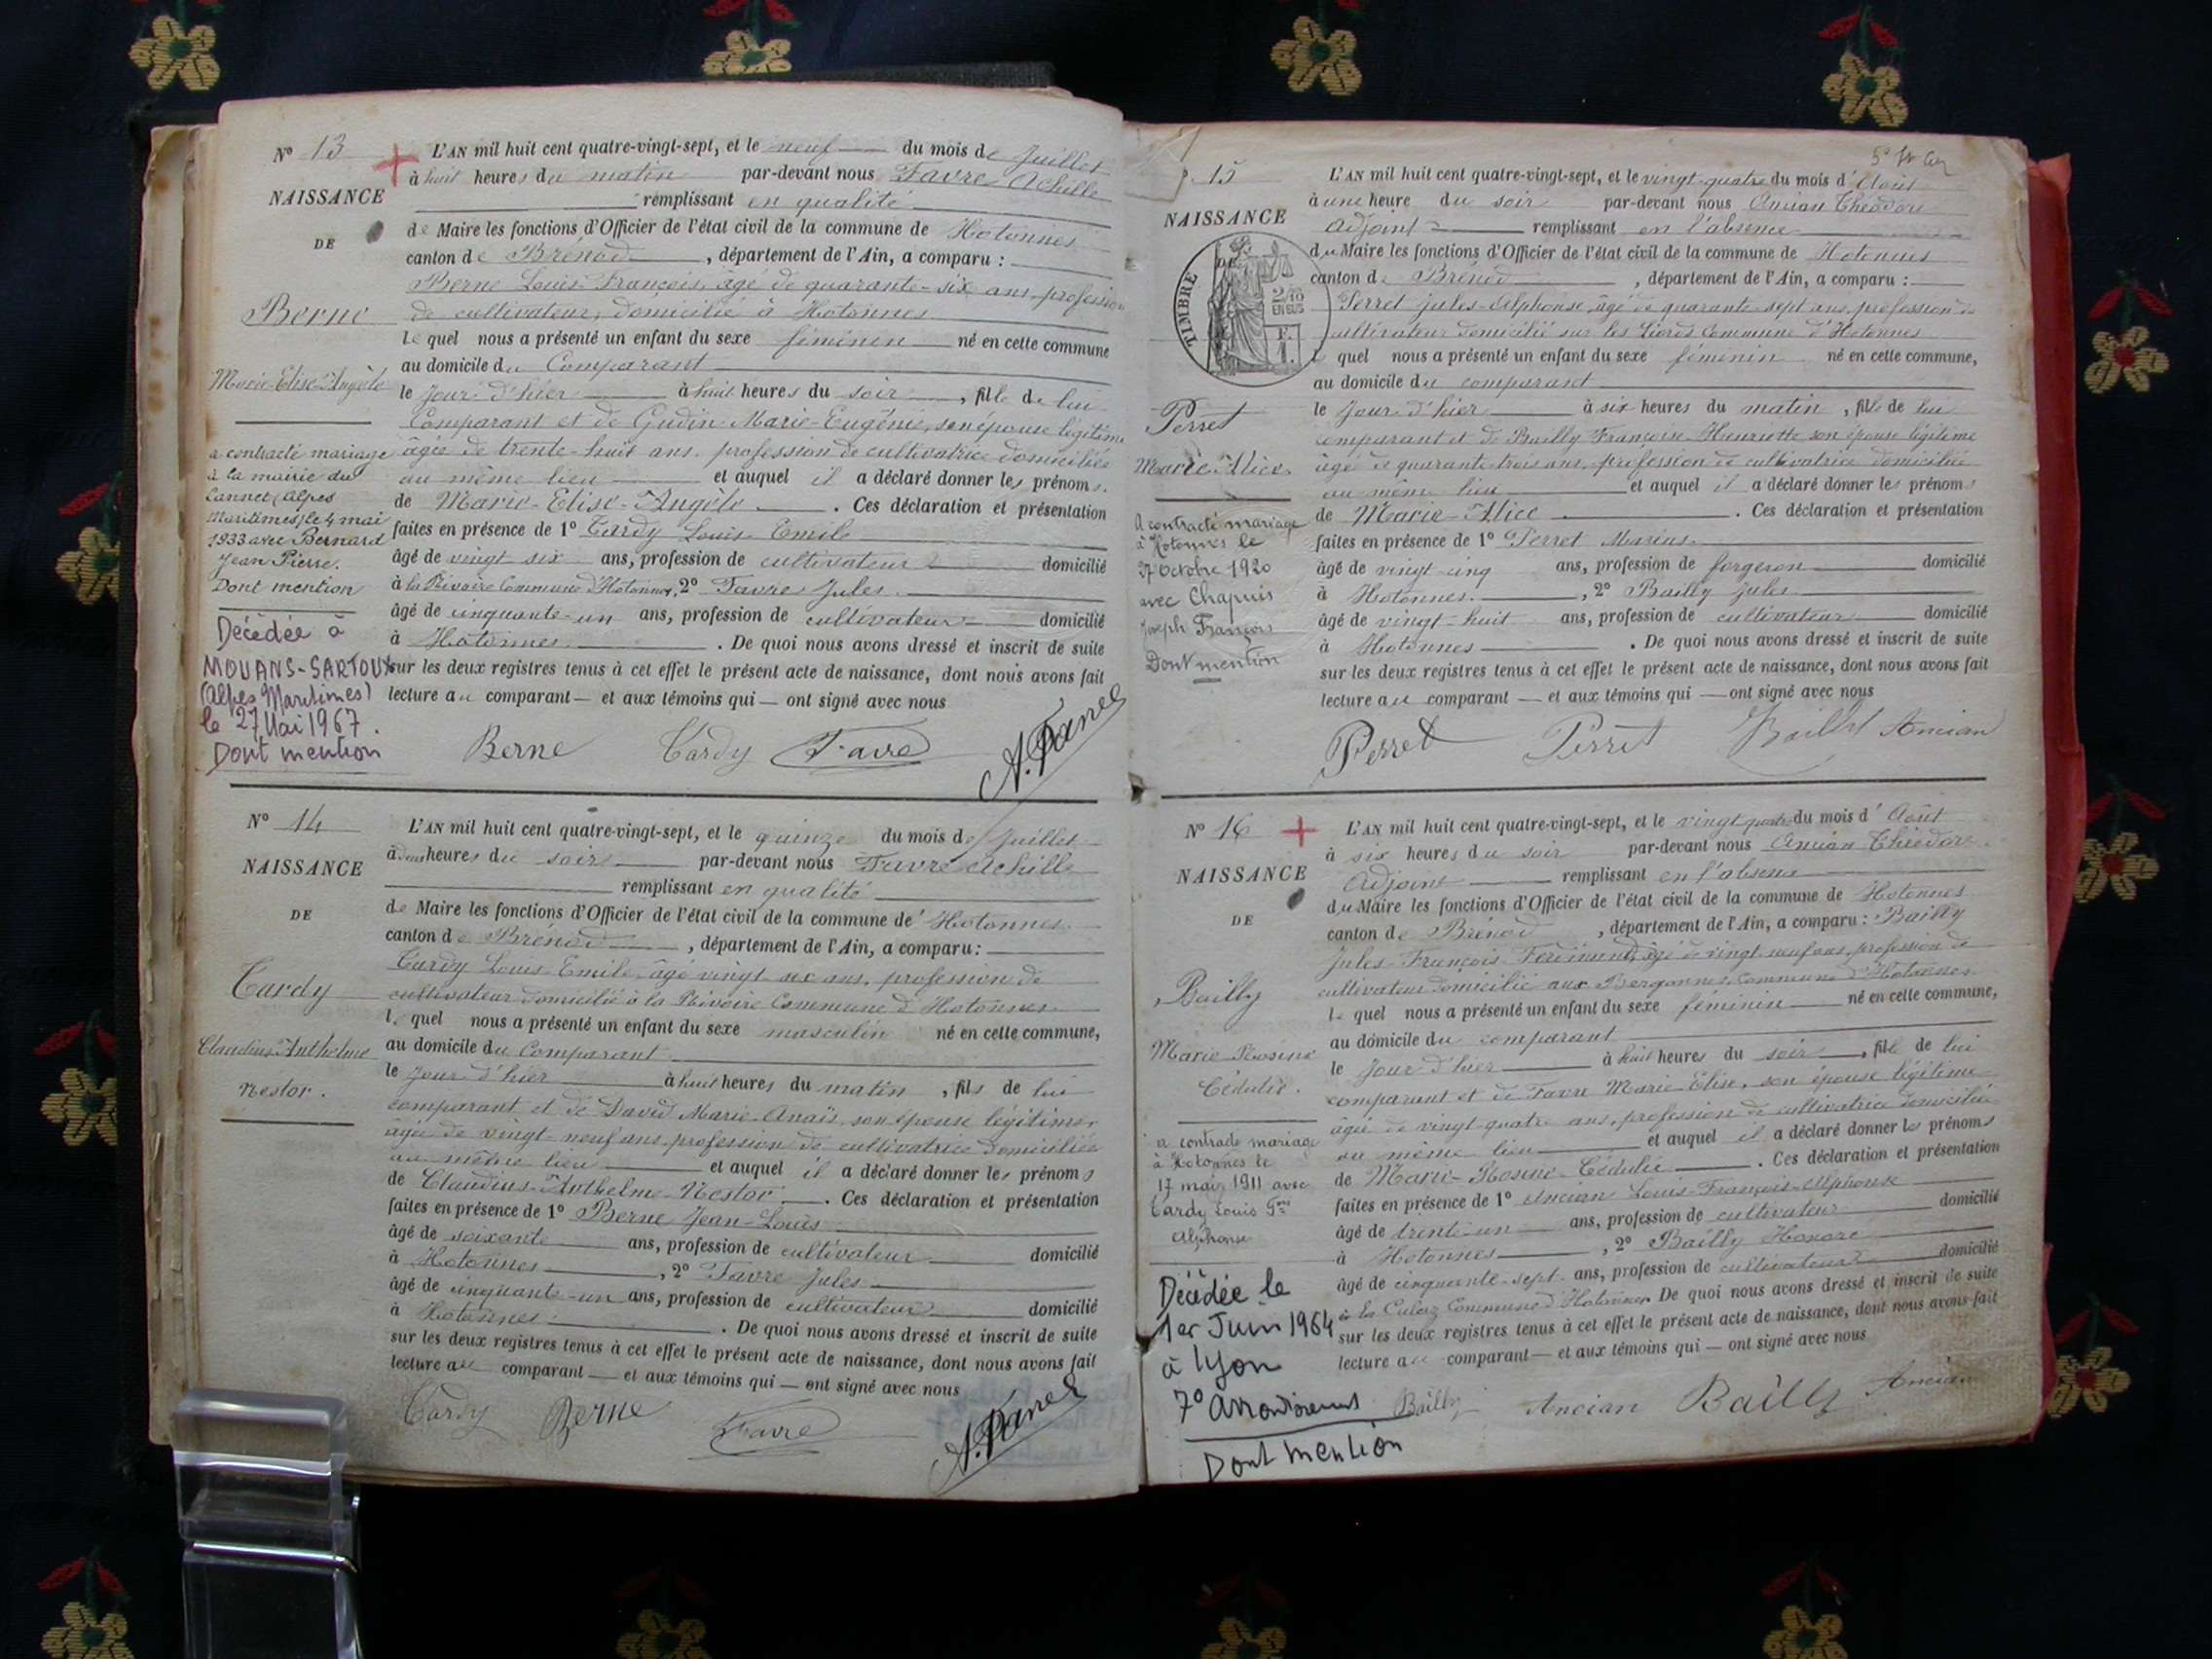 N° 13
NAISSANCE
DE
Berne
Marie-Elise-Angèle
a contracté mariage
à la mairie du
Cannet (Alpes
Maritimes) le 4 mai
1933 avec Bernard
Jean Pierre.
Dont mention
Décédée à
MOUANS-SARTOUX
(Alpes Maritimes)
le 27 Mai 1967.
Dont mention
L'AN mil huit cent quatre-vingt-sept, et le neuf du mois de Juillet
à huit heures du matin par-devant nous Favre Achille
remplissant en qualité
de Maire les fonctions d'Officier de l'état civil de la commune de Hotonnes
canton de Brénod, département de l'Ain, a comparu :
Berne Louis-François, âgé de quarante-six ans, profession
de cultivateur, domicilié à Hotonnes
le quel nous a présenté un enfant du sexe féminin né en cette commune
au domicile du Comparant
le Jour d'hier à huit heures du soir, fille de lui
Comparant et de Gudin Marie-Eugénie, son épouse légitime
âgée de trente-huit ans, profession de cultivatrice domiciliée
au même lieu et auquel il a déclaré donner les prénoms
de Marie-Elise-Angèle. Ces déclaration et présentation
faites en présence de 1° Tardy Louis-Emile
âgé de vingt six ans, profession de cultivateur domicilié
à la Rivoire Commune d'Hotonnes, 2° Favre Jules
âgé de cinquante-un ans, profession de cultivateur domicilié
à Hotonnes. De quoi nous avons dressé et inscrit de suite
sur les deux registres tenus à cet effet le présent acte de naissance, dont nous avons fait
lecture au comparant — et aux témoins qui — ont signé avec nous
Berne Tardy Favre A. Favre
N° 14
NAISSANCE
DE
Tardy
Claudius-Anthelme
Nestor.
L'AN mil huit cent quatre-vingt-sept, et le quinze du mois de Juillet
à deux heures du soir par-devant nous Favre Achille
remplissant en qualité
de Maire les fonctions d'Officier de l'état civil de la commune de Hotonnes.
canton de Brénod, département de l'Ain, a comparu :
Tardy Louis-Emile, âgé vingt six ans, profession de
cultivateur domicilié à la Rivoire Commune d'Hotonnes.
le quel nous a présenté un enfant du sexe masculin né en cette commune,
au domicile du Comparant
le Jour d'hier à huit heures du matin, fils de lui
comparant et de David Marie-Anaïs, son épouse légitime
âgée de vingt-neuf ans, profession de cultivatrice domiciliée
au même lieu et auquel il a déclaré donner les prénoms
de Claudius-Anthelme-Nestor. Ces déclaration et présentation
faites en présence de 1° Berne Jean-Louis
âgé de soixante ans, profession de cultivateur domicilié
à Hotonnes, 2° Favre Jules
âgé de cinquante-un ans, profession de cultivateur domicilié
à Hotonnes. De quoi nous avons dressé et inscrit de suite
sur les deux registres tenus à cet effet le présent acte de naissance, dont nous avons fait
lecture au comparant — et aux témoins qui — ont signé avec nous
Tardy Berne Favre A. Favre
15
NAISSANCE
TIMBRE
2/10
EN SUS
Perret
Marie-Alice
A contracté mariage
à Hotonnes le
27 Octobre 1920
avec Chapuis
Joseph François
Dont mention
L'AN mil huit cent quatre-vingt-sept, et le vingt-quatre du mois d'Août
à une heure du soir par-devant nous Ancian Théodore
Adjoint remplissant en l'absence
du Maire les fonctions d'Officier de l'état civil de la commune de Hotonnes
canton de Brénod, département de l'Ain, a comparu :
Perret Jules-Alphonse, âgé de quarante-sept ans, profession de
cultivateur domicilié sur les Commune d'Hotonnes
le quel nous a présenté un enfant du sexe féminin né en cette commune,
au domicile du comparant
le Jour d'hier à six heures du matin, fille de lui
comparant et de Bailly Françoise-Henriette son épouse légitime
âgé de quarante-trois ans, profession de cultivatrice domiciliée
au même lieu et auquel il a déclaré donner les prénoms
de Marie-Alice. Ces déclaration et présentation
faites en présence de 1° Perret Marius
âgé de vingt cinq ans, profession de forgeron domicilié
à Hotonnes, 2° Bailly Jules
âgé de vingt-huit ans, profession de cultivateur domicilié
à Hotonnes. De quoi nous avons dressé et inscrit de suite
sur les deux registres tenus à cet effet le présent acte de naissance, dont nous avons fait
lecture au comparant — et aux témoins qui — ont signé avec nous
Perret Perret Bailly Ancian
N° 16
NAISSANCE
DE
Bailly
Marie-Rosine
Cédulie.
a contracté mariage
à Hotonnes le
17 mars 1911 avec
Tardy Louis
Alphonse
Décédée le
1er Juin 1964
à Lyon
7° Arrondissement
Dont mention
L'AN mil huit cent quatre-vingt-sept, et le vingt-quatre du mois d'Août
à six heures du soir par-devant nous Ancian Théodore
Adjoint remplissant en l'absence
du Maire les fonctions d'Officier de l'état civil de la commune de Hotonnes
canton de Brénod, département de l'Ain, a comparu : Bailly
Jules-François-Ferdinand, âgé de vingt neuf ans, profession de
cultivateur domicilié aux Bergonnes, Commune d'Hotonnes
le quel nous a présenté un enfant du sexe féminin né en cette commune,
au domicile du comparant
le Jour d'hier à huit heures du soir, fille de lui
comparant et de Favre Marie-Elise, son épouse légitime
âgée de vingt-quatre ans, profession de cultivatrice domiciliée
au même lieu et auquel il a déclaré donner les prénoms
de Marie-Rosine-Cédulie. Ces déclaration et présentation
faites en présence de 1° Ancian Louis-François-Alphonse
âgé de trente-un ans, profession de cultivateur domicilié
à Hotonnes, 2° Bailly Honoré
âgé de cinquante-sept ans, profession de cultivateur domicilié
à la Commune d'Hotonnes. De quoi nous avons dressé et inscrit de suite
sur les deux registres tenus à cet effet le présent acte de naissance, dont nous avons fait
lecture au comparant — et aux témoins qui — ont signé avec nous
Bailly Ancian Bailly Ancian